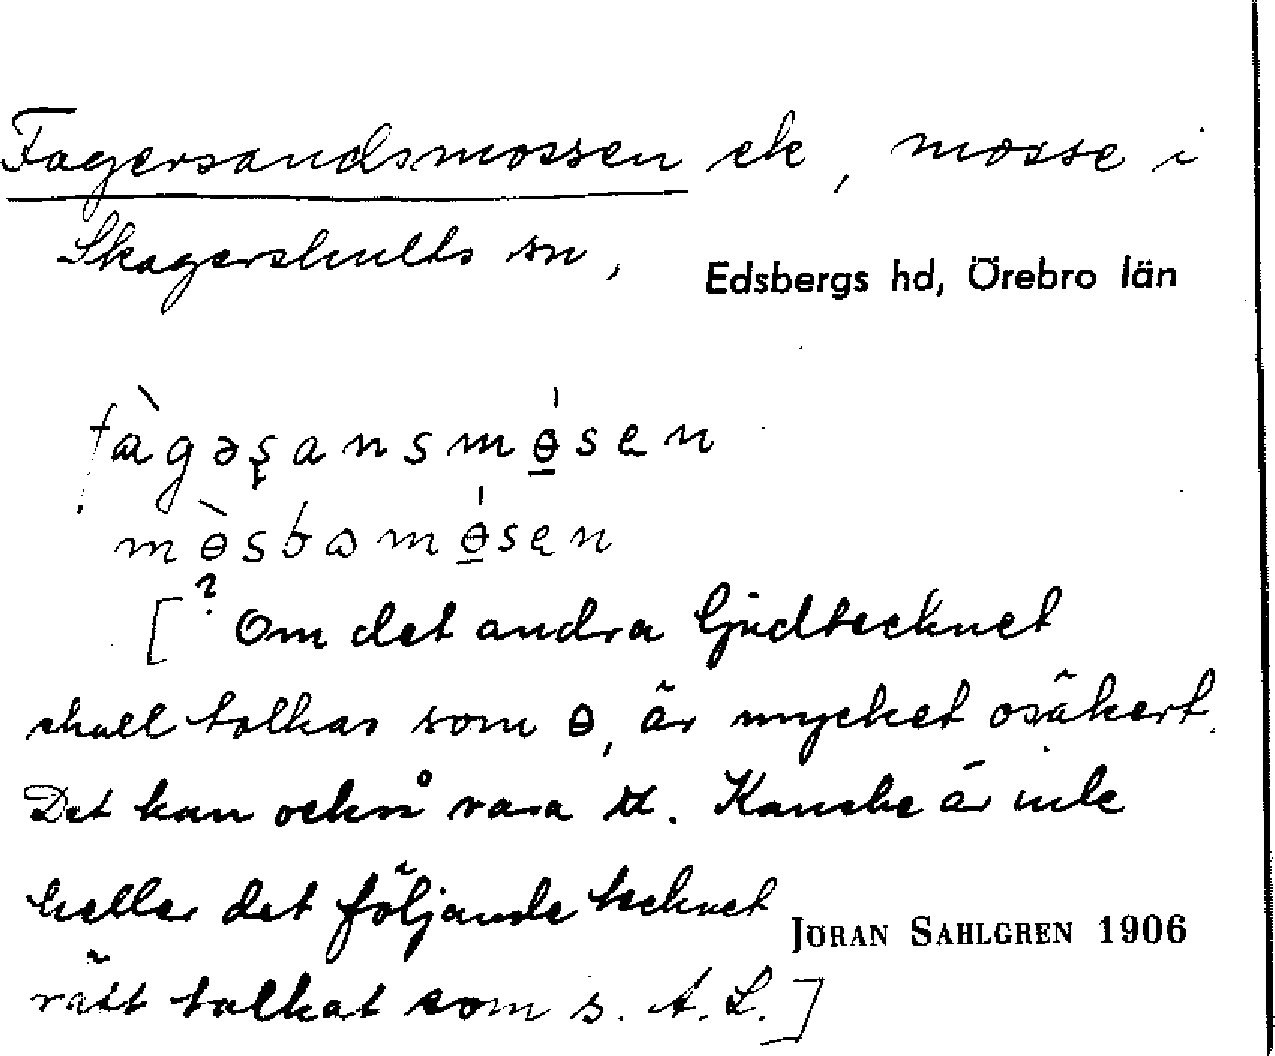 Fagersandsmossen ek, mosse i
Skagershults sn, Edsbergs hd, Örebro län
fàgəʂansmɵ̠́sen
mɵ̀sbɷmɵ̠́sen
[? Om det andra ljudtecknet
skall tolkas som ɵ, är mycket osäkert.
Det kan också vara æ. Kanske är inte
heller det följande tecknet
JÖRAN SAHLGREN 1906
rätt tolkat som s. A. L.]